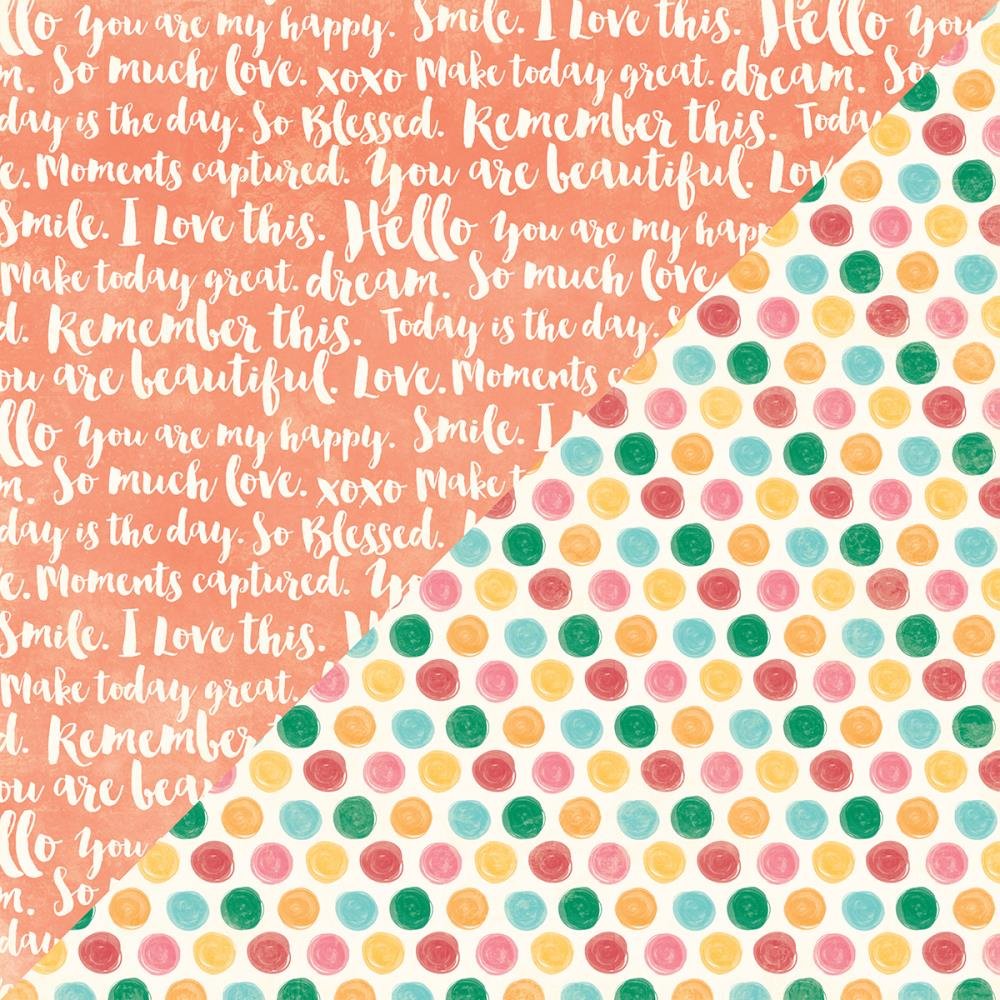 llo you are my happy. Smile. I Love this. Hello you
m. So much love. xoxo Make today great. dream. So
day is the day. So Blessed. Remember this. Today
e. Moments captured. You are beautiful. Lov
Smile. I Love this. Hello you are my happ
Make today great. dream. So much love.
d. Remember this. Today is the day. S
ou are beautiful. Love. Moments c
llo you are my happy. Smile. I
m. So much love. xoxo Make t
day is the day. So Blessed.
e. Moments captured. Yo
Smile. I Love this. H
Make today great.
d. Remember
ou are beau
llo you
m. So
day